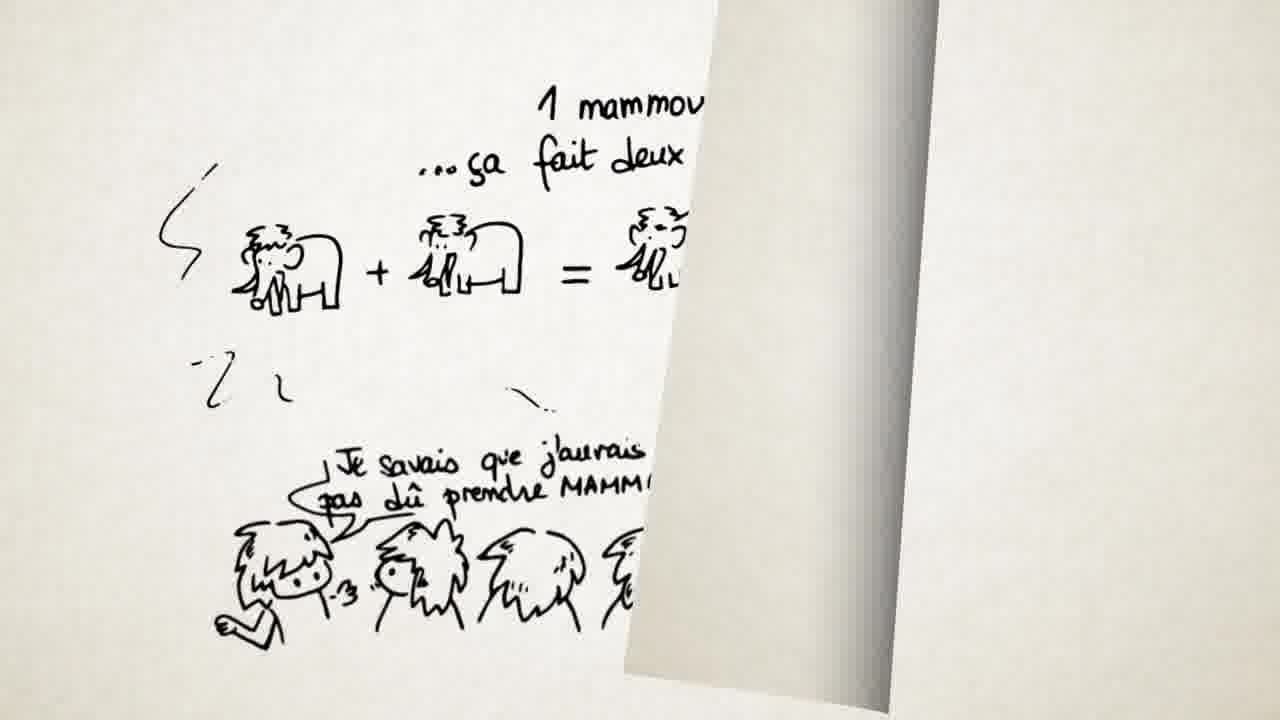 1 mammou
...ça fait deux
+ =
Je savais que j'aurais
pas dû prendre MAMM